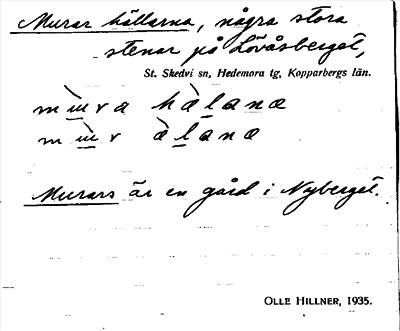 Murar hällarna, några stora
stenar på Lövåsberget,
St. Skedvi sn, Hedemora tg, Kopparbergs län.
Murars är en gård i Nyberget.
OLLE HILLNER, 1935.